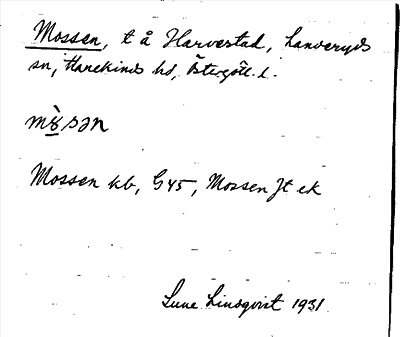 Mossen, t å Harvestad, Landeryds
sn, Hanekinds hd, Östergötl. l.
mò̤sən
Mossen kb, G45, Mossen Jt ek
Sune Lindqvist 1931